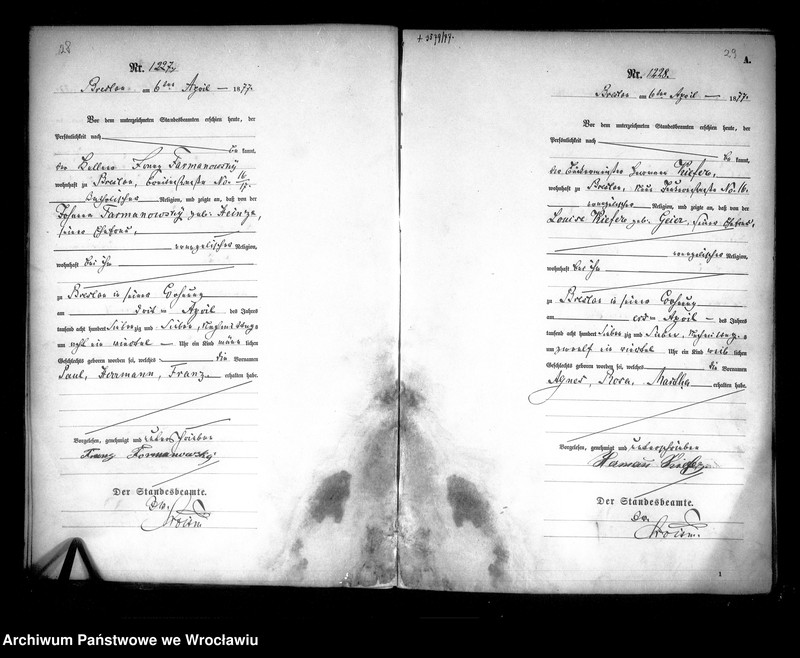 28
Nr. 1227.
Breslau am 6ten April 1877.
Vor dem unterzeichneten Standesbeamten erschien heute, der
Persönlichkeit nach
be kannt,
der Kellner Franz Farmanowsky
wohnhaft zu Breslau, No. 16/17.
katholischer Religion, und zeigte an, daß von der
Johanna Farmanowsky geb. Heinze,
seiner Ehefrau,
evangelischer Religion,
wohnhaft bei ihm
zu Breslau in seiner Wohnung
am April des Jahres
tausend acht hundert siebenzig und sieben, Nachmittags
um acht ein viertel Uhr ein Kind männ lichen
Geschlechts geboren worden sei, welches die Vornamen
Paul, Herrmann, Franz erhalten habe.
Vorgelesen, genehmigt und unterschrieben
Franz Farmanowsky.
Der Standesbeamte.
+ 3599/79.
29
A.
Nr. 1228.
Breslau am 6ten April 1877.
Vor dem unterzeichneten Standesbeamten erschien heute, der
Persönlichkeit nach
be kannt,
der Hermann Kiefer,
wohnhaft zu Breslau, Neue No. 16.
evangelischer Religion, und zeigte an, daß von der
Louise Kiefer geb. Geier, seiner Ehefrau,
evangelischer Religion,
wohnhaft bei ihm
zu Breslau in seiner Wohnung
am April des Jahres
tausend acht hundert siebenzig und sieben, Nachmittags
um zwölf ein viertel Uhr ein Kind weib lichen
Geschlechts geboren worden sei, welches die Vornamen
Agnes, Rosa, Martha erhalten habe.
Vorgelesen, genehmigt und unterschrieben
Der Standesbeamte.
1
Archiwum Państwowe we Wrocławiu